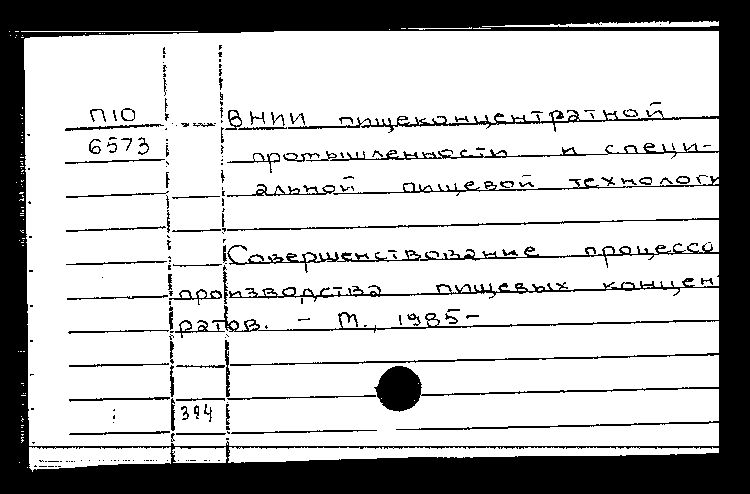 П10 ВНИИ пищеконцентратной
6573 промышленности и специ-
альной пищевой технологи
Совершенствование процессо
производства пищевых концент
ратов. - М., 1985-
394